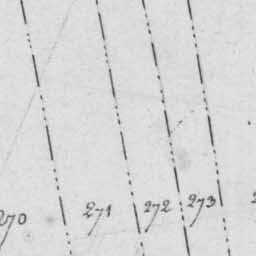 270 271 272 273